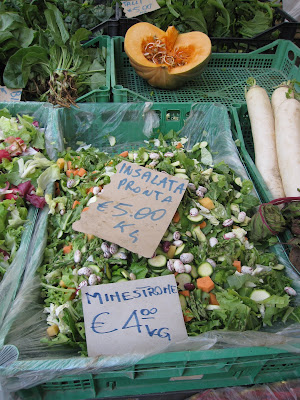 INSALATA
PRONTA
€5.00
KG
MINESTRONE
€4.00
KG